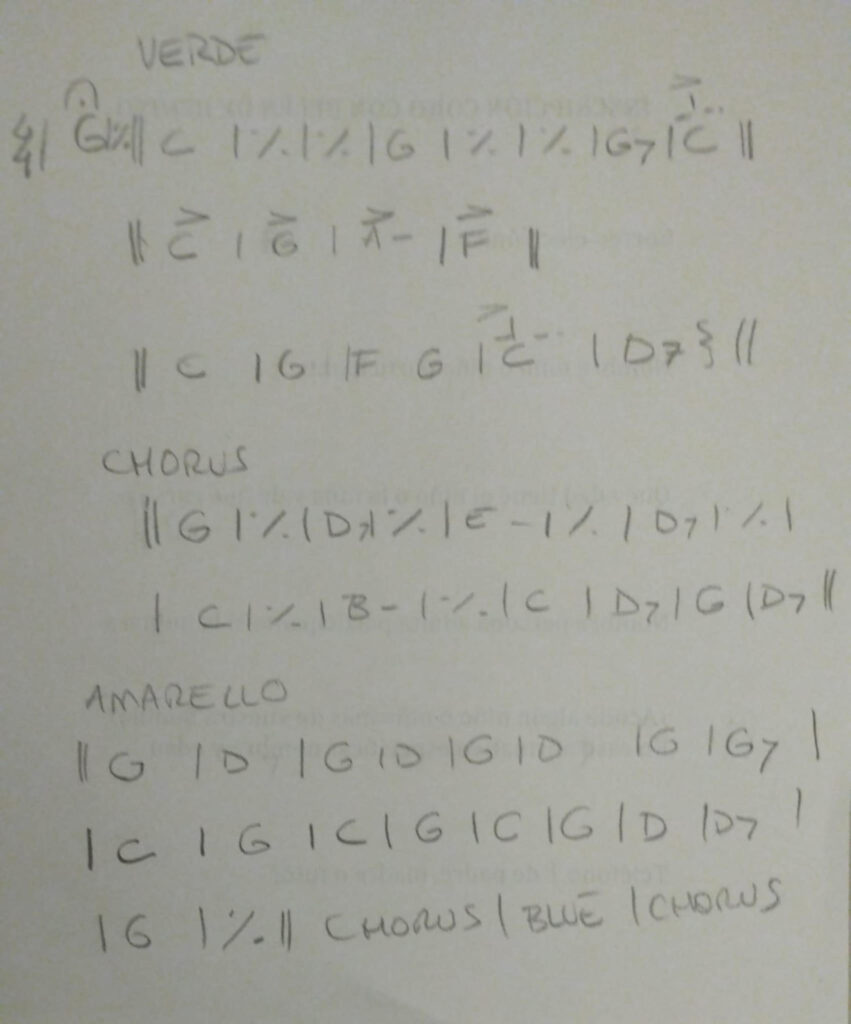 VERDE
4/4 | G |٪|| C | ٪ | ٪ | G | ٪ | ٪ | G7 | C ||
|| C | G | A- | F ||
|| C | G | F G | C | D7 } ||
CHORUS
|| G | ٪ | D7 | ٪ | E- | ٪ | D7 | ٪ |
| C | ٪ | B- | ٪ | C | D7 | G | D7 ||
AMARELLO
|| G | D | G | D | G | D | G | G7 |
| C | G | C | G | C | G | D | D7 |
| G | ٪ || CHORUS | BLUE | CHORUS